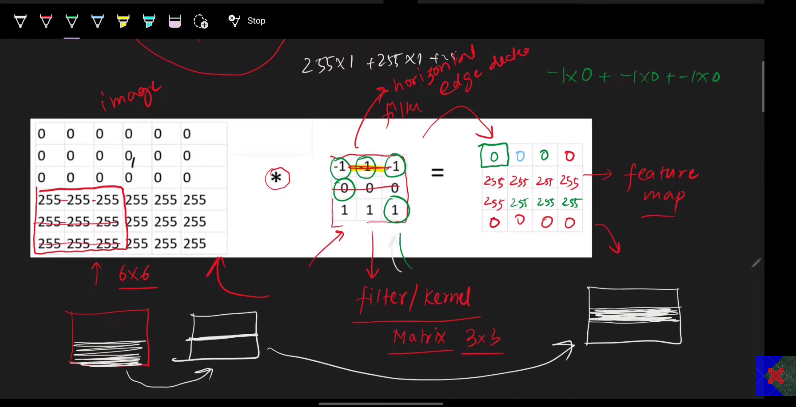 Stop
255x1 +255x1 +25
-1x0 + -1x0 + -1x0
horizontal
edge
image
0 0 0 0 0 0
0 0 0 0 0 0
0 0 0 0 0 0
255 255 255 255 255 255
255 255 255 255 255 255
255 255 255 255 255 255
*
-1 -1 -1
0 0 0
1 1 1
=
0 0 0 0
255 255 255 255
255 255 255 255
0 0 0 0
feature
map
6x6
filter/kernel
Matrix 3x3